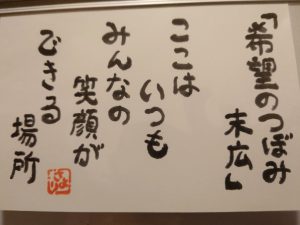 「希望のつぼみ
末広」
ここは
いつも
みんなの
笑顔が
できる
場所